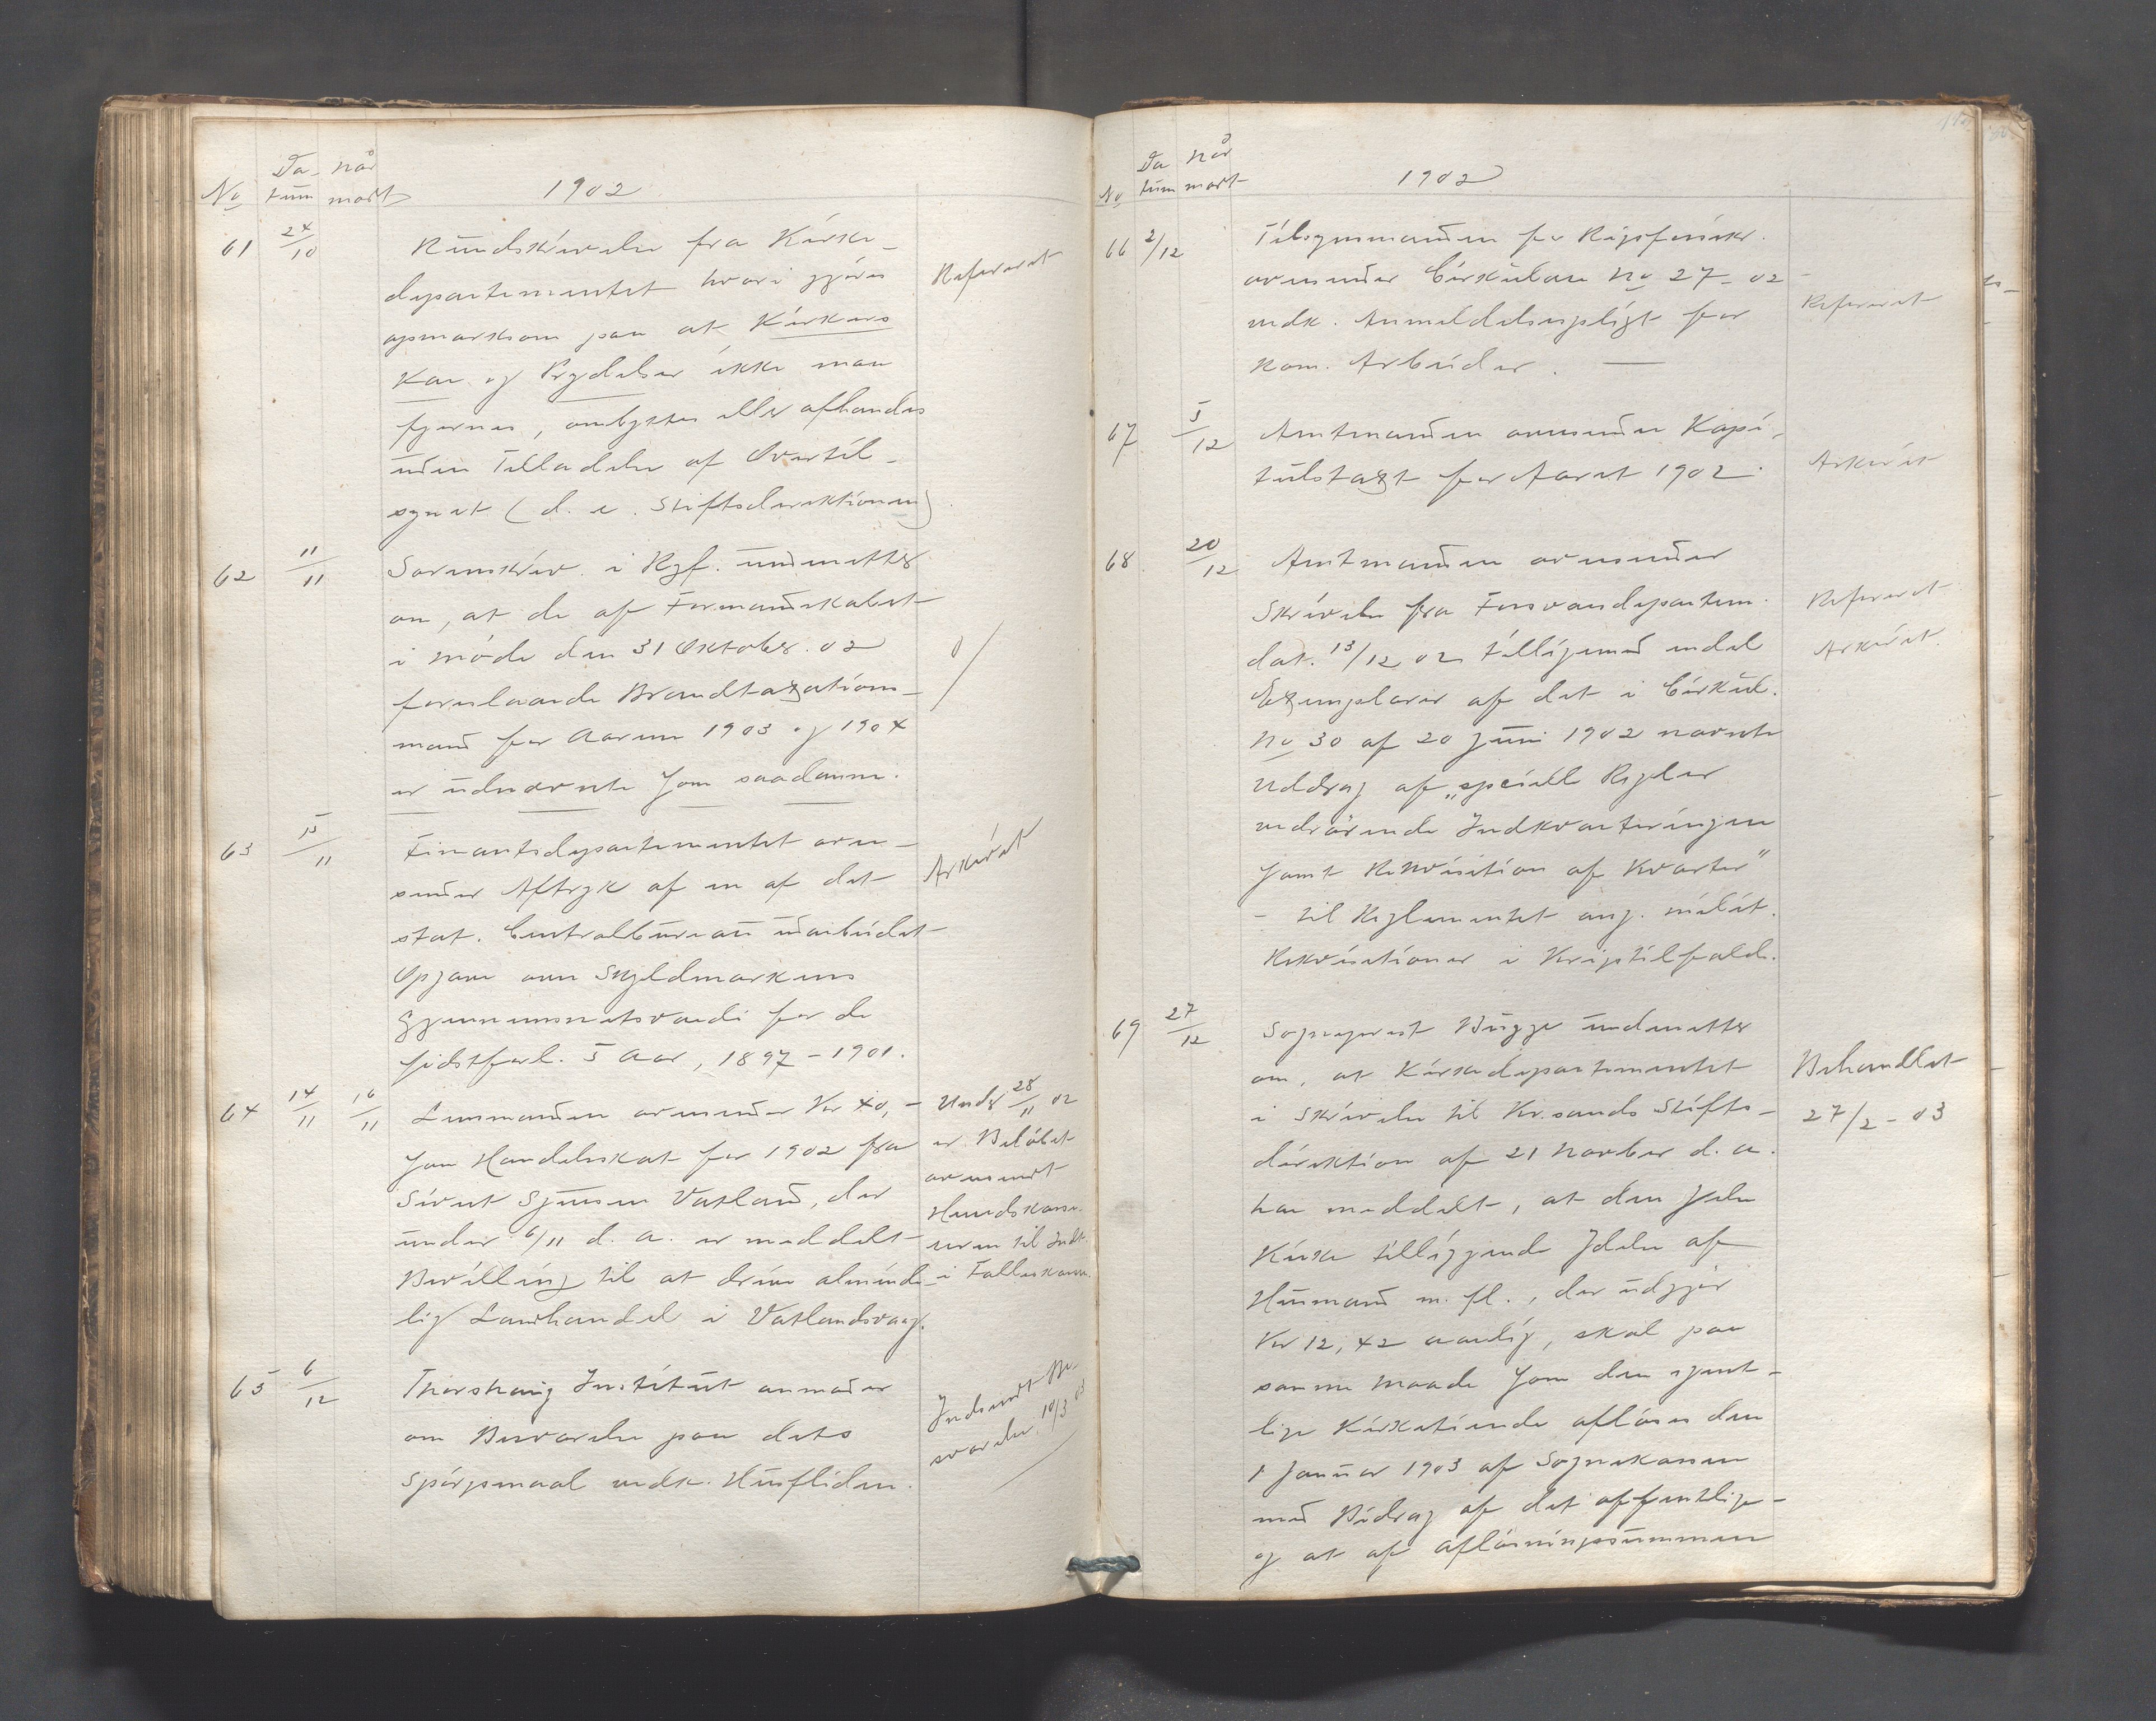 No Da- når
tum modt 1902
61 24/10 Rundskrivelse fra Kirke-
departementet hvori gjøres Refereret
opmærksom paa at Kirkers
Kar og Prydelser ikke maa
fjernes, ombyttes eller afhændes
uden Tilladelse af Overtil-
synet (d. e. Stiftsdirektionen)
62 11/11 Sorenskriv. i Ryf. underretter
om, at de af Formandskabet
i møde den 31 Oktober. 02 0/
foreslaaede Brandtaxations-
mænd for Aarene 1903 og 1904
er udnævnte som saadanne.
63 15/11 Finantsdepartementet over-
sender Aftryk af en af det Arkivét
stat. Centralbureau udarbeidet
Opgave over Skyldmarkens
Gjennemsnitsværdi for de
sidstforl. 5 Aar, 1897-1901.
64 14/11 16/11 Lensmanden oversender Kr 40,- Under 28/11 02
som Handelsskat for 1902 fra er Beløbet
Sivert Sjursen Vatland, der oversendt
under 6/11 d. A. er meddelt Herredskasse-
Bevilling til at drive alminde- reren til Indt.
lig Landhandel i Vatlandsvaag. i Fælleskassen
65 6/12 Thorshaug Institut anmoder Indsendt Be-
om Besvarelse paa dets svarelse 10/3 03
Spørgsmaal vedk. Husfliden.
No Da når
tum modt 1902
66 2/12 Tilsynsmanden for Rigsforsikr.
oversender Cirkulære No 27-02
vedk. Anmeldelsespligt for Refereret
kom. Arbeider.
67 5/12 Amtmanden oversender Kapi-
tulstaxt for Aaret 1902. Arkivét
68 20/12 Amtmanden oversender
Skrivelse fra Forsvarsdepartem. Refereret
dat. 13/12 02 tilligemed endel Arkivét.
Exemplarer af det i Cirkul.
No 30 af 20 Juni 1902 nævnte
Uddrag af "specielle Regler
vedrørende Indkvarteringen
samt Rekvisition af Kvarter"
- til Reglementet ang. milit.
Rekvisitioner i Krigstilfælde.
69 27/12 Sogneprest Bugge underretter
om, at Kirkedepartementet Behandlet
i Skrivelse til Kr.sands Stifts- 27/2-03
direktion af 21 Novber d. A.
har meddelt, at den Jelse
Kirke tilliggende Ydelse af
Husmænd m. fl., der udgjør
Kr 12,42 aarlig, skal paa
samme Maade som den egent-
lige Kirketiende afløses den
1 Januar 1903 af Sognekassen
med Bidrag af det offentlige
og at af afløsningssummen